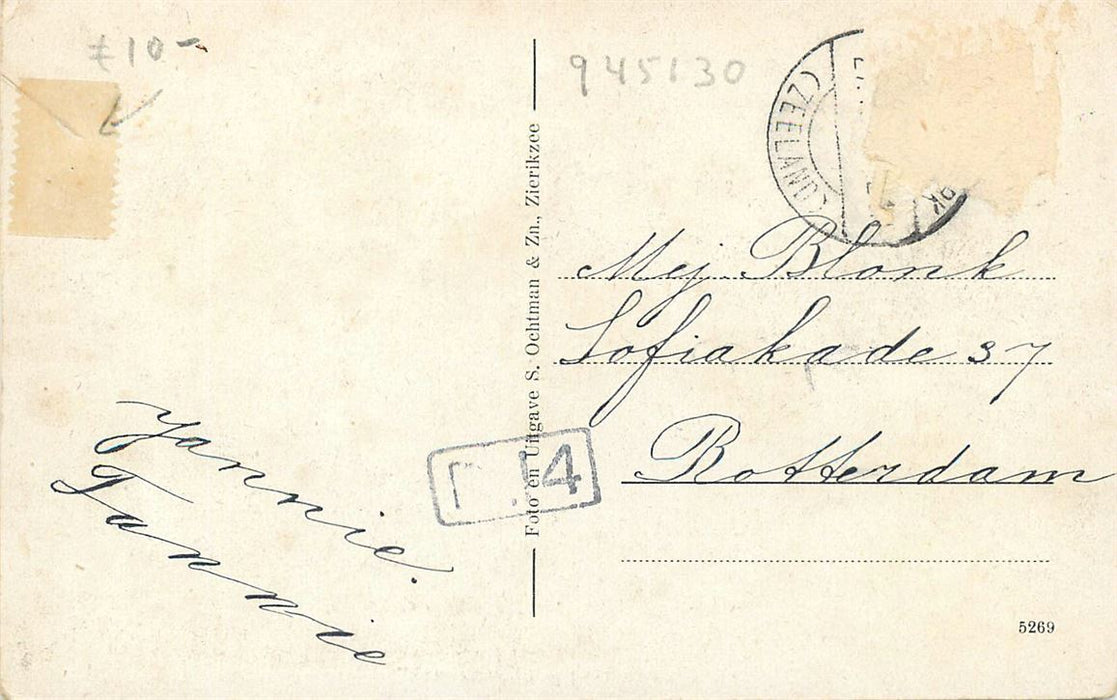 10-
945130
(ZEELAND)
RK
Mej. Blonk
Sofiakade 37
Rotterdam
Jannie.
Tannie
4
Foto en Uitgave S. Ochtman & Zn., Zierikzee
5269